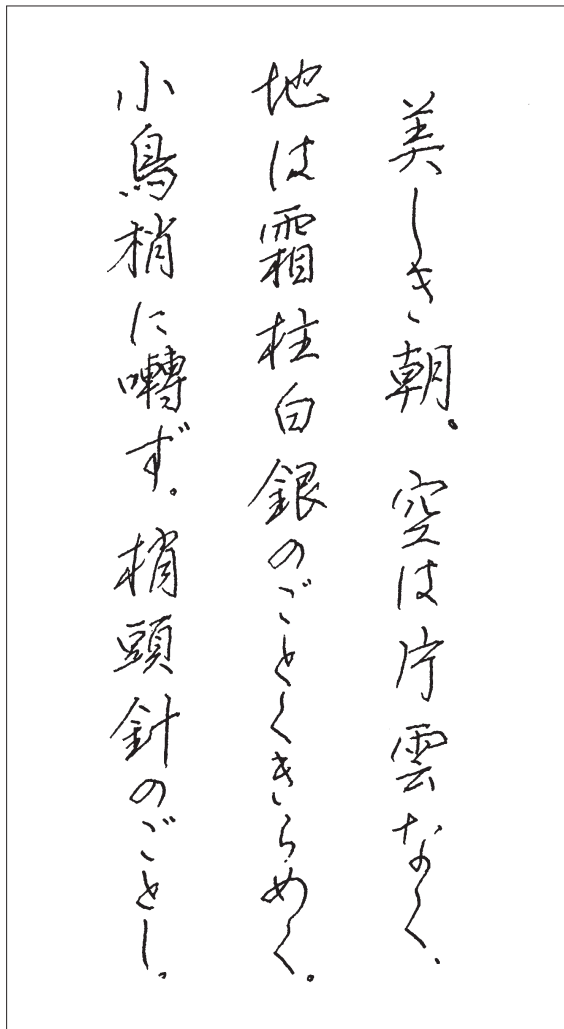 美しき朝。空は片雲なく、
地は霜柱白銀のごとくきらめく。
小鳥梢に囀ず。梢頭針のごとし。